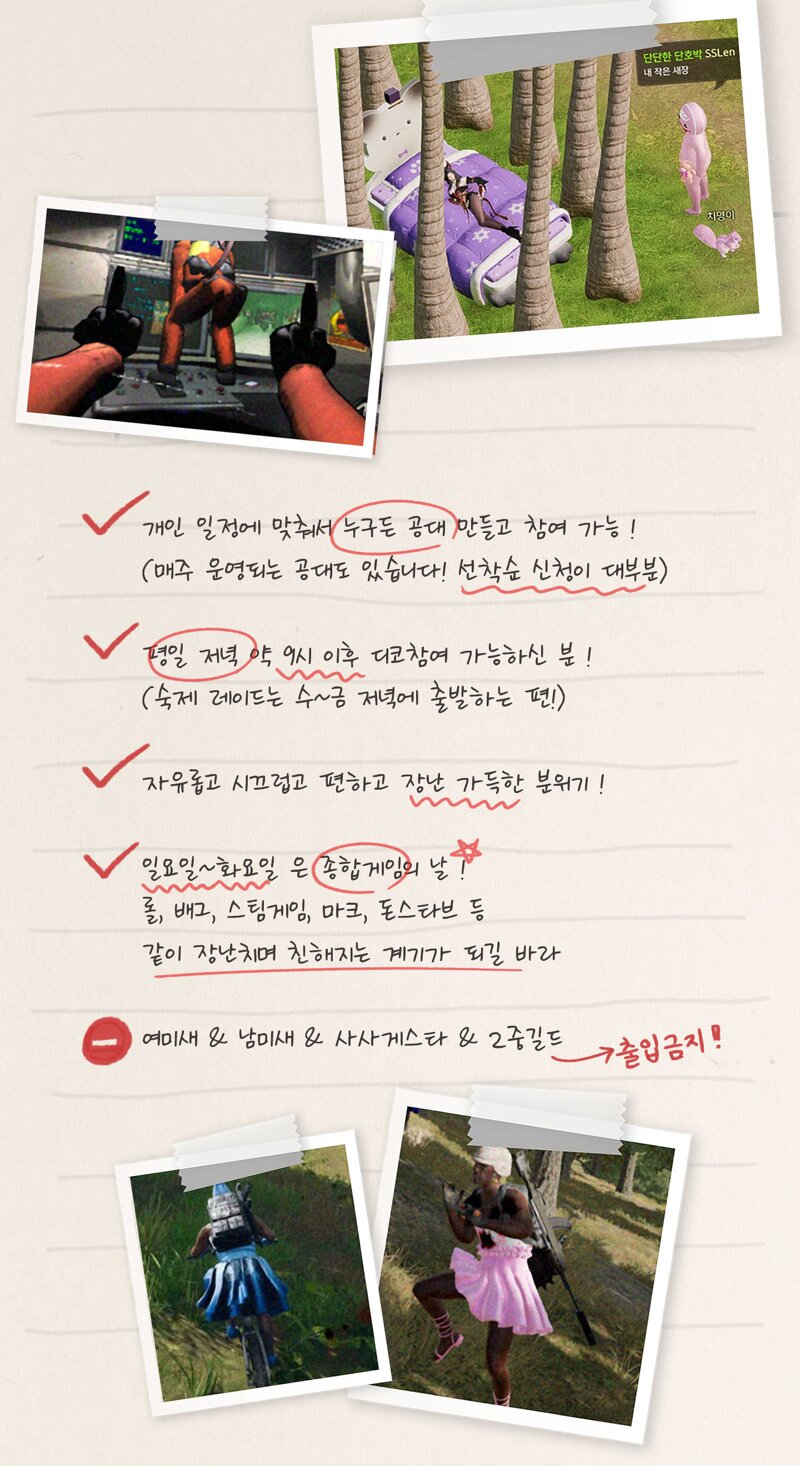 단단한 단호박 SSLen
내 작은 새장
치명이
개인 일정에 맞춰서 누구든 공대 만들고 참여 가능!
(매주 운영되는 공대도 있습니다! 선착순 신청이 대부분)
평일 저녁 약 9시 이후 디코참여 가능하신 분!
(숙제 레이드는 수~금 저녁에 출발하는 편!)
자유롭고 시끄럽고 편하고 장난 가득한 분위기!
일요일~화요일 은 종합게임의 날!
롤, 배그, 스팀게임, 마크, 돈스타브 등
같이 장난치며 친해지는 계기가 되길 바라
여미새 & 남미새 & 사사게스타 & 2중길드
출입금지!